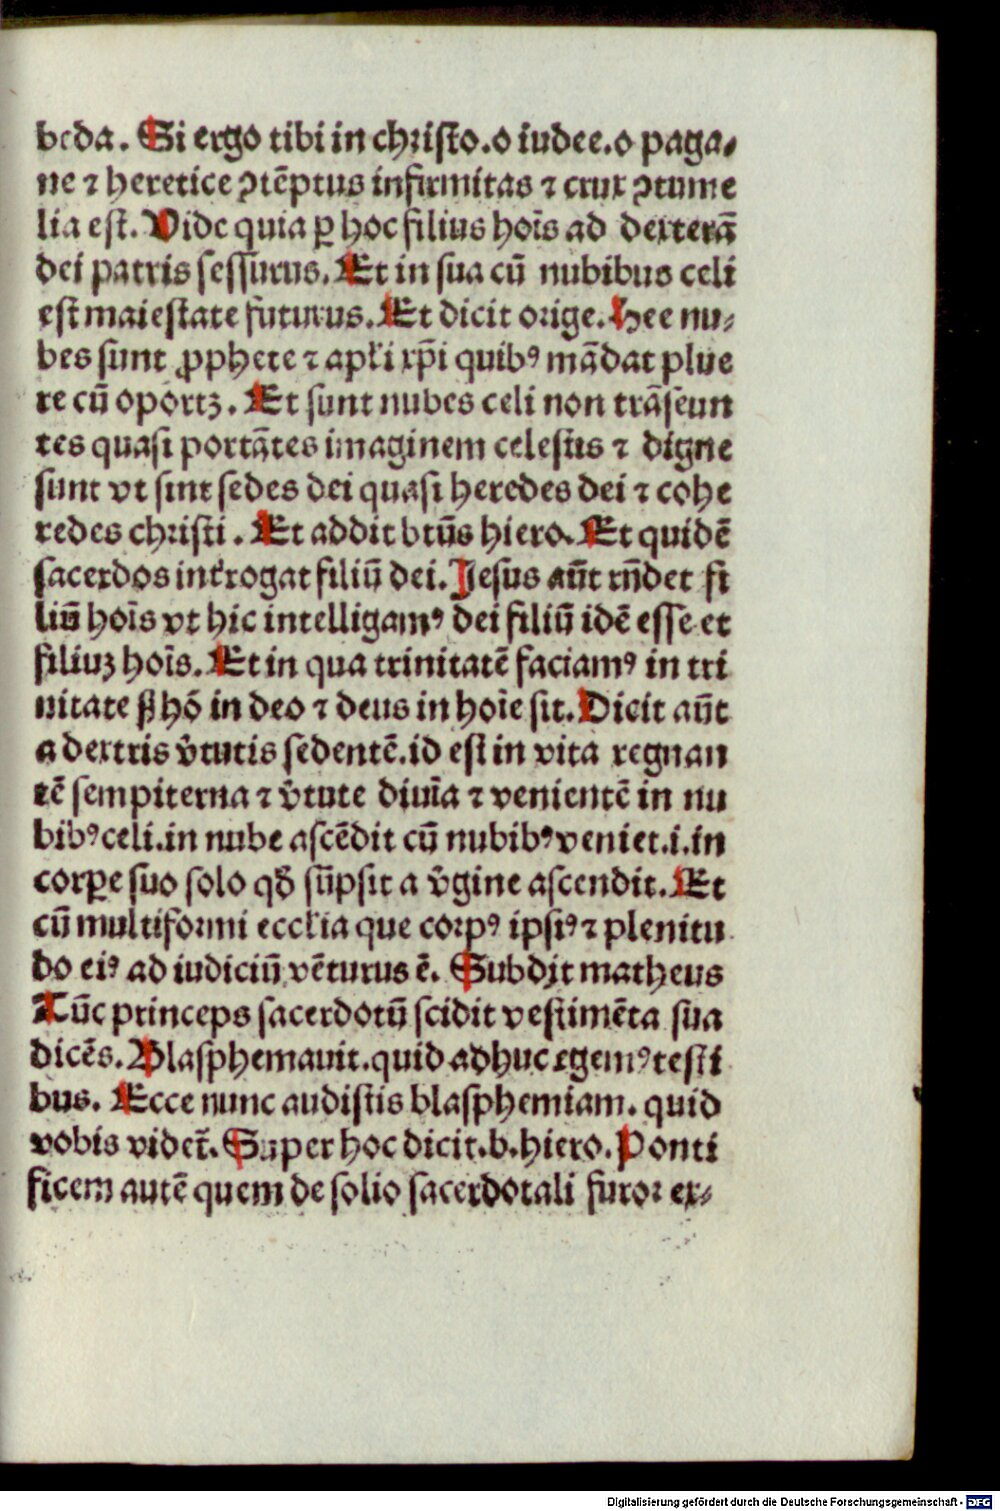 beda. Si ergo tibi in christo.o iudee.o paga⸗
ne ⁊ heretice ꝯtẽptus infirmitas ⁊ crux ꝯtume
lia est. Vide quia ꝑ hoc filius hoĩs ad dexterã
dei patris sessurus. Et in sua cũ nubibus celi
est maiestate futurus. Et dicit orige. Hee nu⸗
bes sunt ꝓphete ⁊ apl̃i xp̃i quibꝰ mãdat plue
re cũ oportꝫ. Et sunt nubes celi non trãseun
tes quasi portãtes imaginem celestis ⁊ digne
sunt vt sint sedes dei quasi heredes dei ⁊ cohe
redes christi. Et addit btũs hiero. Et quidẽ
sacerdos int̃rogat filiũ dei. Jesus aũt rñdet fi
liũ hoĩs vt hic intelligamꝰ dei filiũ idẽ esse et
filiuꝫ hoĩs. Et in qua trinitatẽ faciamꝰ in tri
nitate ſꝫ hõ in deo ⁊ deus in hoĩe sit. Dicit aũt
a dextris v̾tutis sedentẽ.id est in vita regnan
tẽ sempiterna ⁊ v̾tute diuĩa ⁊ venientẽ in nu
bibꝰ celi.in nube ascẽdit cũ nubibꝰ veniet.i.in
corꝑe suo solo qð sũpsit a v̾gine ascendit. Et
cũ multiformi eccl̃ia que corpꝰ ipsiꝰ ⁊ plenitu
do eiꝰ ad iudiciũ vẽturus ẽ. Subdit matheus
Tũc princeps sacerdotũ scidit vestimẽta sua
dicẽs. Blasphemauit.quid adhuc egemꝰ testi
bus. Ecce nunc audistis blasphemiam. quid
vobis videt̃. Super hoc dicit.b.hiero. Ponti
ficem autẽ quem de solio sacerdotali furor ex⸗
Digitalisierung gefördert durch die Deutsche Forschungsgemeinschaft - DFG